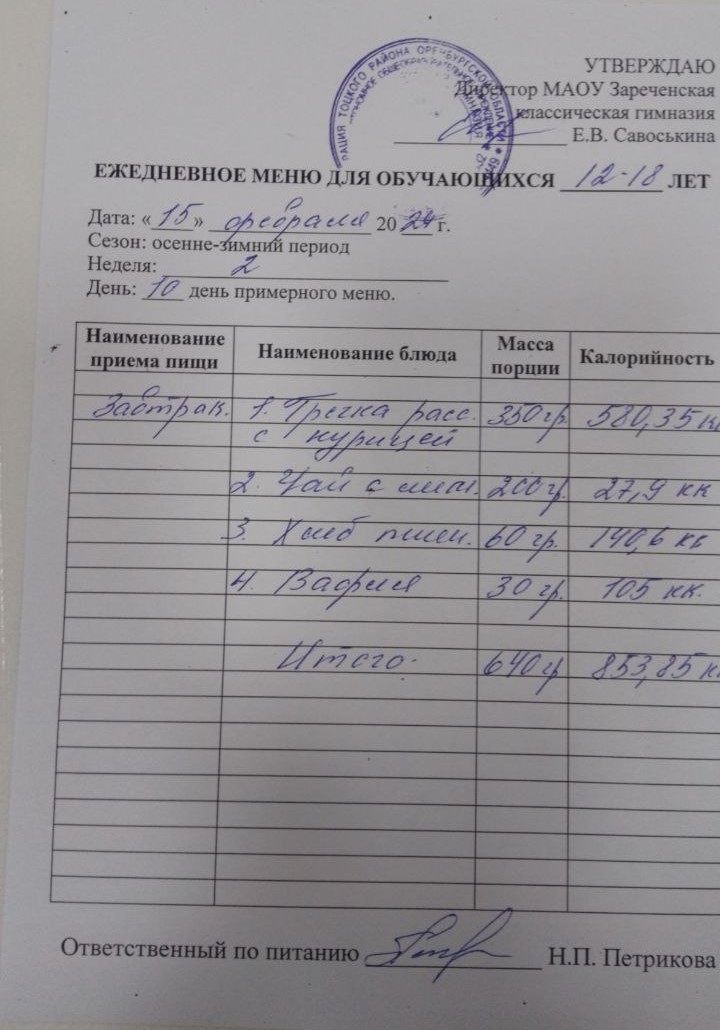 УТВЕРЖДАЮ
Директор МАОУ Зареченская
классическая гимназия
Е.В. Савоськина
АЦИЯ ТОЦКОГО РАЙОНА ОРЕНБУРГСКОЙ ОБЛАСТИ
ЕЖЕДНЕВНОЕ МЕНЮ ДЛЯ ОБУЧАЮЩИХСЯ 12-18 ЛЕТ
Дата: «15» февраля 20 24 г.
Сезон: осенне-зимний период
Неделя: 2
День: 10 день примерного меню.
Наименование приема пищи Наименование блюда Масса порции Калорийность
Завтрак. 1. Гречка расс. 350 гр. 580,35 кк
с курицей
2. Чай с лим. 200 гр. 27,9 кк
3. Хлеб пшен. 60 гр. 140,6 кк
4. Вафля 30 гр. 105 кк.
Итого: 640 гр 853,85 кк
Ответственный по питанию Н.П. Петрикова